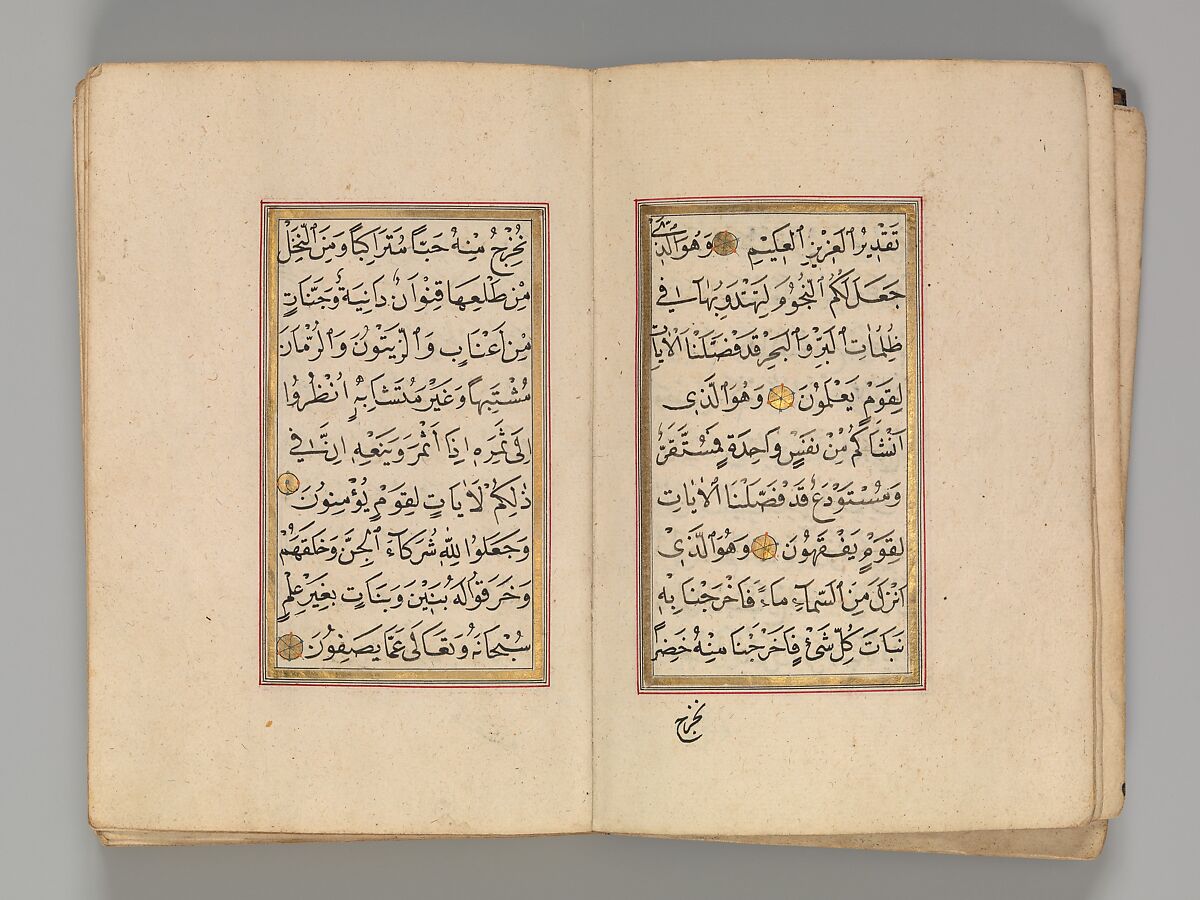 تَقْدِيرُ الْعَزِيزِ الْعَلِيمِ وَهُوَ الَّذِي
جَعَلَ لَكُمُ النُّجُومَ لِتَهْتَدُوا بِهَا فِي
ظُلُمَاتِ الْبَرِّ وَالْبَحْرِ قَدْ فَصَّلْنَا الْاٰيَاتِ
لِقَوْمٍ يَعْلَمُونَ وَهُوَ الَّذِي
اَنْشَاَكُمْ مِنْ نَفْسٍ وَاحِدَةٍ فَمُسْتَقَرٌّ
وَمُسْتَوْدَعٌ قَدْ فَصَّلْنَا الْاٰيَاتِ
لِقَوْمٍ يَفْقَهُونَ وَهُوَ الَّذِي
اَنْزَلَ مِنَ السَّمَاءِ مَاءً فَاَخْرَجْنَا بِهِ
نَبَاتَ كُلِّ شَيْءٍ فَاَخْرَجْنَا مِنْهُ خَضِرًا
نخرج
نُخْرِجُ مِنْهُ حَبًّا مُتَرَاكِبًا وَمِنَ النَّخْلِ
مِنْ طَلْعِهَا قِنْوَانٌ دَانِيَةٌ وَجَنَّاتٍ
مِنْ اَعْنَابٍ وَالزَّيْتُونَ وَالرُّمَّانَ
مُشْتَبِهًا وَغَيْرَ مُتَشَابِهٍ اُنْظُرُوا
اِلَى ثَمَرِهِ اِذَا اَثْمَرَ وَيَنْعِهِ اِنَّ فِي
ذٰلِكُمْ لَاٰيَاتٍ لِقَوْمٍ يُؤْمِنُونَ
وَجَعَلُوا لِلّٰهِ شُرَكَاءَ الْجِنَّ وَخَلَقَهُمْ
وَخَرَقُوا لَهُ بَنِينَ وَبَنَاتٍ بِغَيْرِ عِلْمٍ
سُبْحَانَهُ وَتَعَالَى عَمَّا يَصِفُونَ